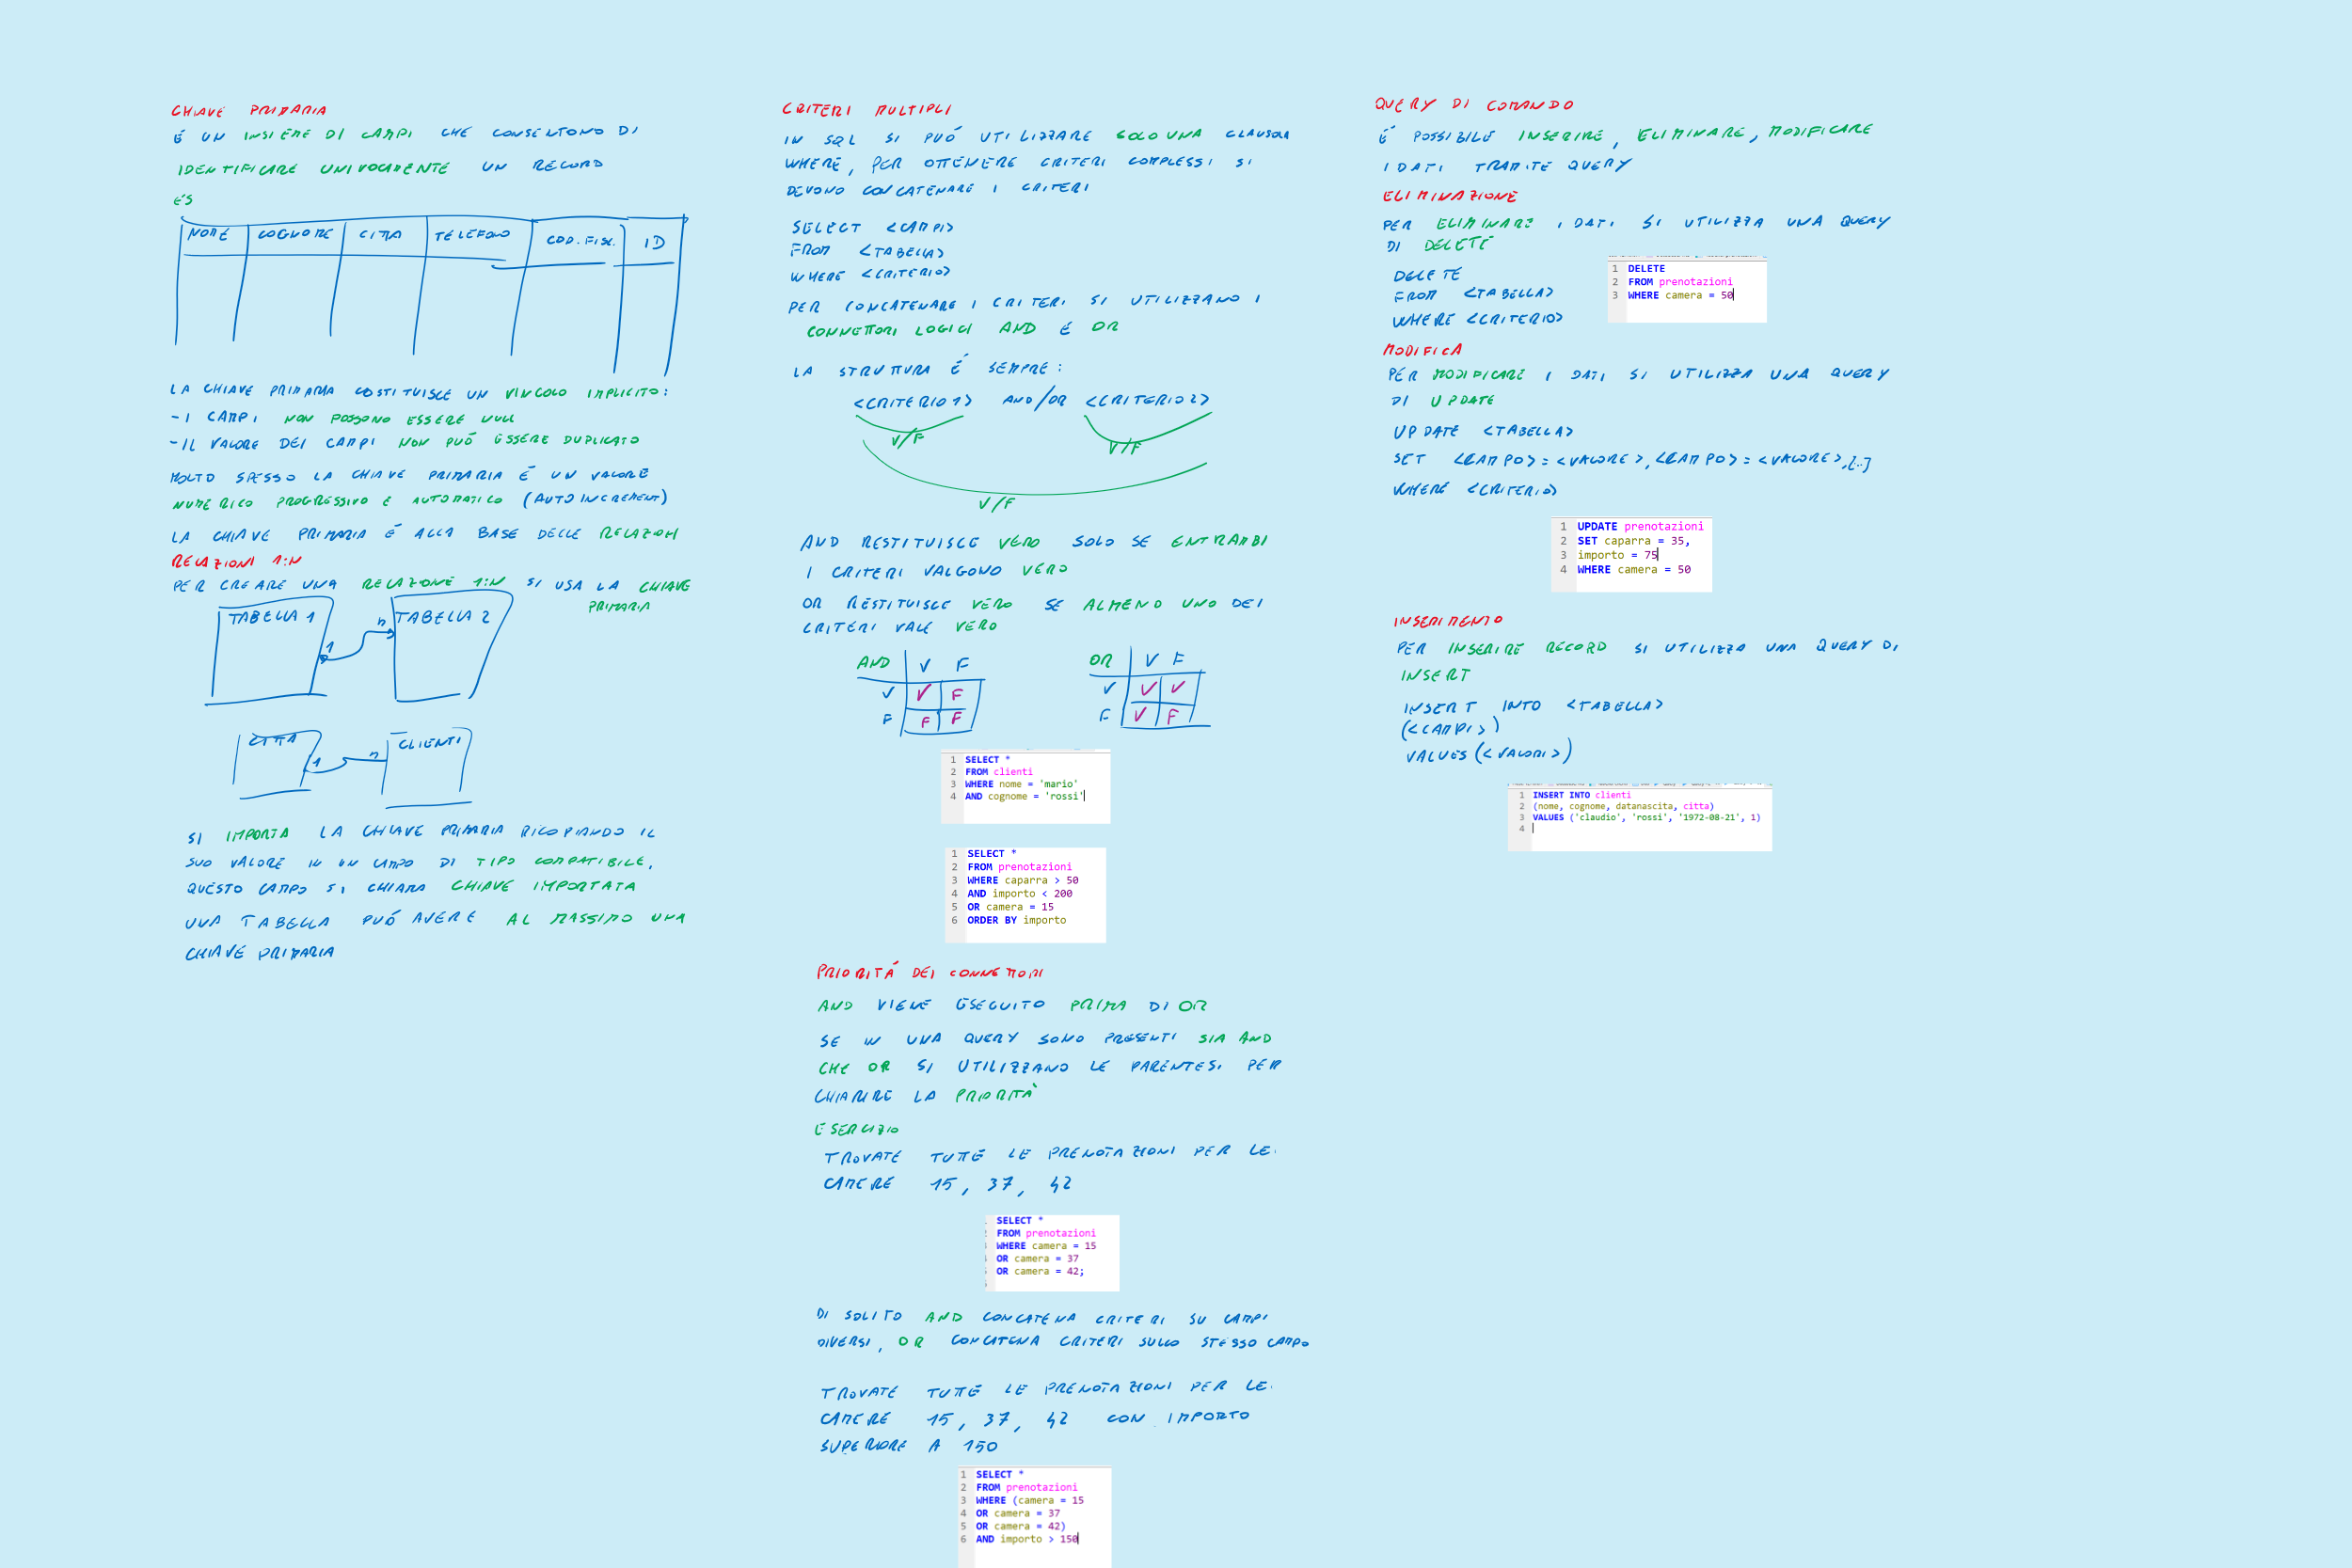 CHIAVE PRIMARIA
É UN INSIEME DI CAMPI CHE CONSENTONO DI
IDENTIFICARE UNIVOCAMENTE UN RECORD
ES
NOME COGNOME CITTA TELEFONO COD.FISC. ID
LA CHIAVE PRIMARIA COSTITUISCE UN VINCOLO IMPLICITO:
- I CAMPI NON POSSONO ESSERE NULL
- IL VALORE DEI CAMPI NON PUÓ ESSERE DUPLICATO
MOLTO SPESSO LA CHIAVE PRIMARIA É UN VALORE
NUMERICO PROGRESSIVO E AUTOMATICO (AUTO INCREMENT)
LA CHIAVE PRIMARIA É ALLA BASE DELLE RELAZIONI
RELAZIONI 1:N
PER CREARE UNA RELAZIONE 1:N SI USA LA CHIAVE
PRIMARIA
TABELLA 1 1 n TABELLA 2
CITTA 1 n CLIENTI
SI IMPORTA LA CHIAVE PRIMARIA RICOPIANDO IL
SUO VALORE IN UN CAMPO DI TIPO COMPATIBILE.
QUESTO CAMPO SI CHIAMA CHIAVE IMPORTATA
UNA TABELLA PUÓ AVERE AL MASSIMO UNA
CHIAVE PRIMARIA
CRITERI MULTIPLI
IN SQL SI PUÓ UTILIZZARE SOLO UNA CLAUSOLA
WHERE, PER OTTENERE CRITERI COMPLESSI SI
DEVONO CONCATENARE I CRITERI
SELECT <CAMPI>
FROM <TABELLA>
WHERE <CRITERIO>
PER CONCATENARE I CRITERI SI UTILIZZANO I
CONNETTORI LOGICI AND E OR
LA STRUTTURA É SEMPRE:
<CRITERIO 1> AND/OR <CRITERIO 2>
V/F V/F
V/F
AND RESTITUISCE VERO SOLO SE ENTRAMBI
I CRITERI VALGONO VERO
OR RESTITUISCE VERO SE ALMENO UNO DEI
CRITERI VALE VERO
AND V F
V V F
F F F
OR V F
V V V
F V F
1 SELECT *
2 FROM clienti
3 WHERE nome = 'mario'
4 AND cognome = 'rossi'
1 SELECT *
2 FROM prenotazioni
3 WHERE caparra > 50
4 AND importo < 200
5 OR camera = 15
6 ORDER BY importo
PRIORITÁ DEI CONNETTORI
AND VIENE ESEGUITO PRIMA DI OR
SE IN UNA QUERY SONO PRESENTI SIA AND
CHE OR SI UTILIZZANO LE PARENTESI PER
CHIARIRE LA PRIORITÀ
ESERCIZIO
TROVATE TUTTE LE PRENOTAZIONI PER LE
CAMERE 15, 37, 42
SELECT *
FROM prenotazioni
WHERE camera = 15
OR camera = 37
OR camera = 42;
DI SOLITO AND CONCATENA CRITERI SU CAMPI
DIVERSI, OR CONCATENA CRITERI SULLO STESSO CAMPO
TROVATE TUTTE LE PRENOTAZIONI PER LE
CAMERE 15, 37, 42 CON IMPORTO
SUPERIORE A 150
1 SELECT *
2 FROM prenotazioni
3 WHERE (camera = 15
4 OR camera = 37
5 OR camera = 42)
6 AND importo > 150
QUERY DI COMANDO
É POSSIBILE INSERIRE, ELIMINARE, MODIFICARE
I DATI TRAMITE QUERY
ELIMINAZIONE
PER ELIMINARE I DATI SI UTILIZZA UNA QUERY
DI DELETE
DELETE
FROM <TABELLA>
WHERE <CRITERIO>
1 DELETE
2 FROM prenotazioni
3 WHERE camera = 50
MODIFICA
PER MODIFICARE I DATI SI UTILIZZA UNA QUERY
DI UPDATE
UPDATE <TABELLA>
SET <CAMPO> = <VALORE>, <CAMPO> = <VALORE>, [..]
WHERE <CRITERIO>
1 UPDATE prenotazioni
2 SET caparra = 35,
3 importo = 75
4 WHERE camera = 50
INSERIMENTO
PER INSERIRE RECORD SI UTILIZZA UNA QUERY DI
INSERT
INSERT INTO <TABELLA>
(<CAMPI>)
VALUES (<VALORI>)
1 INSERT INTO clienti
2 (nome, cognome, datanascita, citta)
3 VALUES ('claudio', 'rossi', '1972-08-21', 1)
4